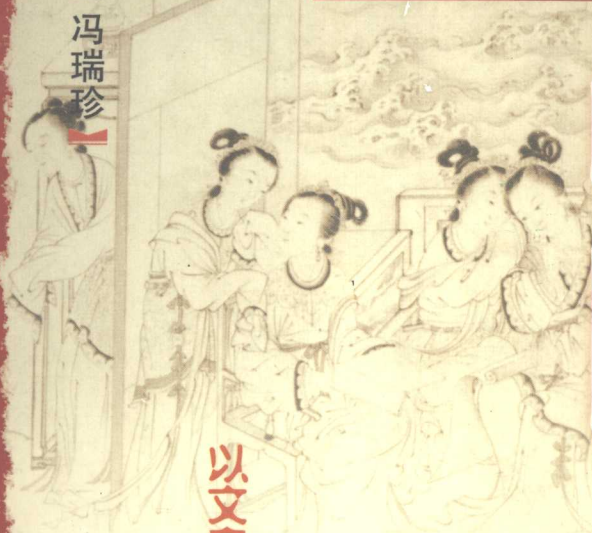 冯瑞珍
以文